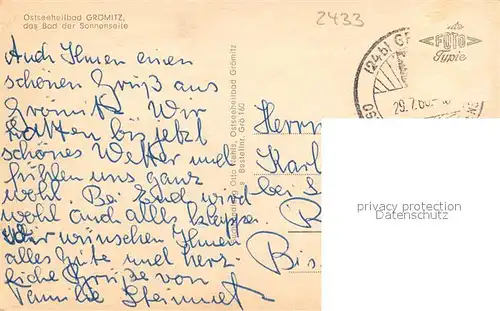 Ostseeheilbad GRÖMITZ,
das Bad der Sonnenseite
2433
FOTO
Typie
(24b) GR
29.7.60
Auch Ihnen einen
schönen Gruß aus
Grömitz. Wir
hatten bis jetzt
schönes Wetter und
fühlen uns ganz
wohl. Bei Euch wird
wohl auch alles klappen.
Wir wünschen Ihnen
alles Gute und herz-
liche Grüße von
Familie
Otto Mehls, Ostseeheilbad Grömitz
Bestellnr. Grö 160
Herrn
Karl
bei
B
Bis
privacy protection
Datenschutz